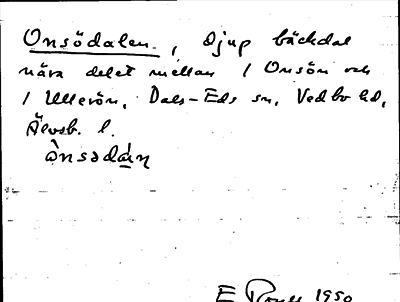 Onsödalen, djup bäckdal
nära delet mellan / Onsön och
/ Ullerön, Dals-Eds sn, Vedbo hd,
Älvsb. l.
ånsədán
E 1950